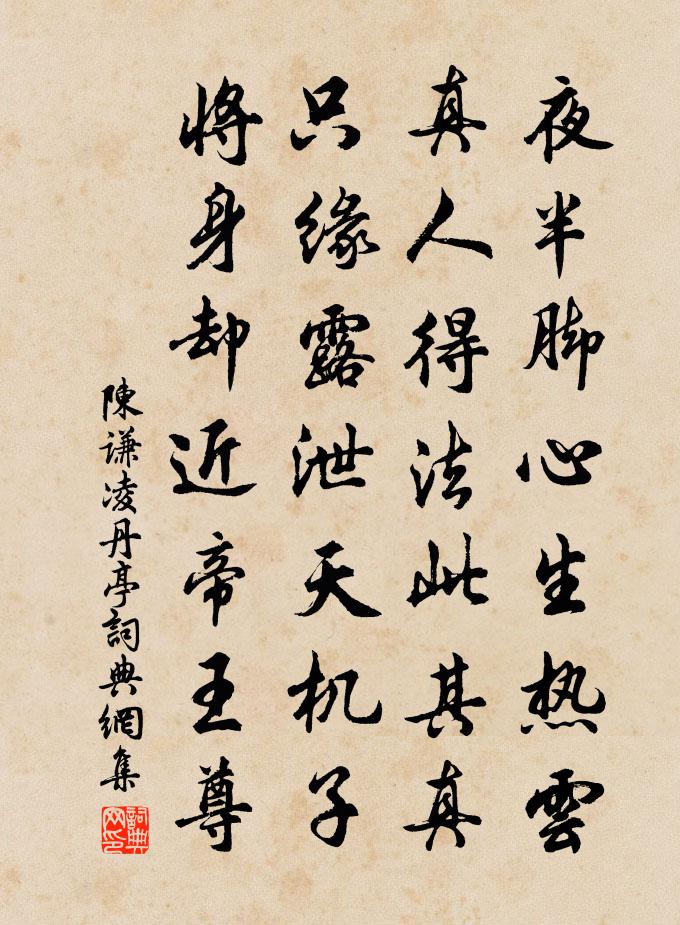 夜半脚心生热雲
真人得法此其真
只缘露泄天机子
将身却近帝王尊
陳謙凌丹亭詞典網集
詞典网印